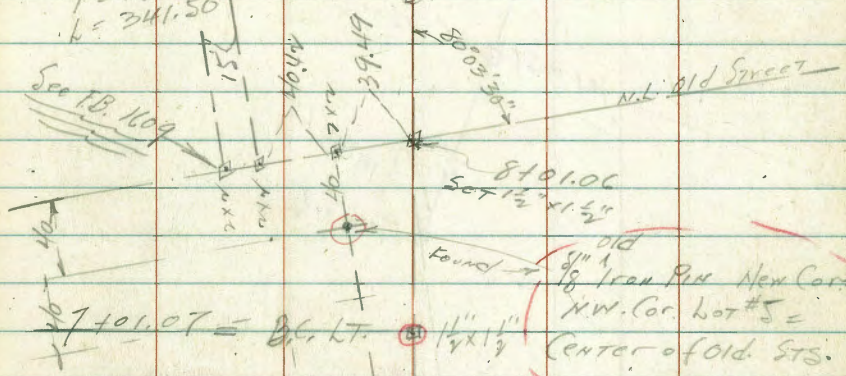 L = 341.50
15'
40.42
39.49
80°03'30"
N.L. Old Street
See F.B. 1109
2 x 2
2 x 2
2 x 2
40
8+01.06
Set 1½" x 1½"
40
40
Found
Old
5/8" Iron Pin New Cor.
N.W. Cor. Lot #5 =
Center of Old. STS.
7+01.07 = B.C. LT.
1½" x 1½"